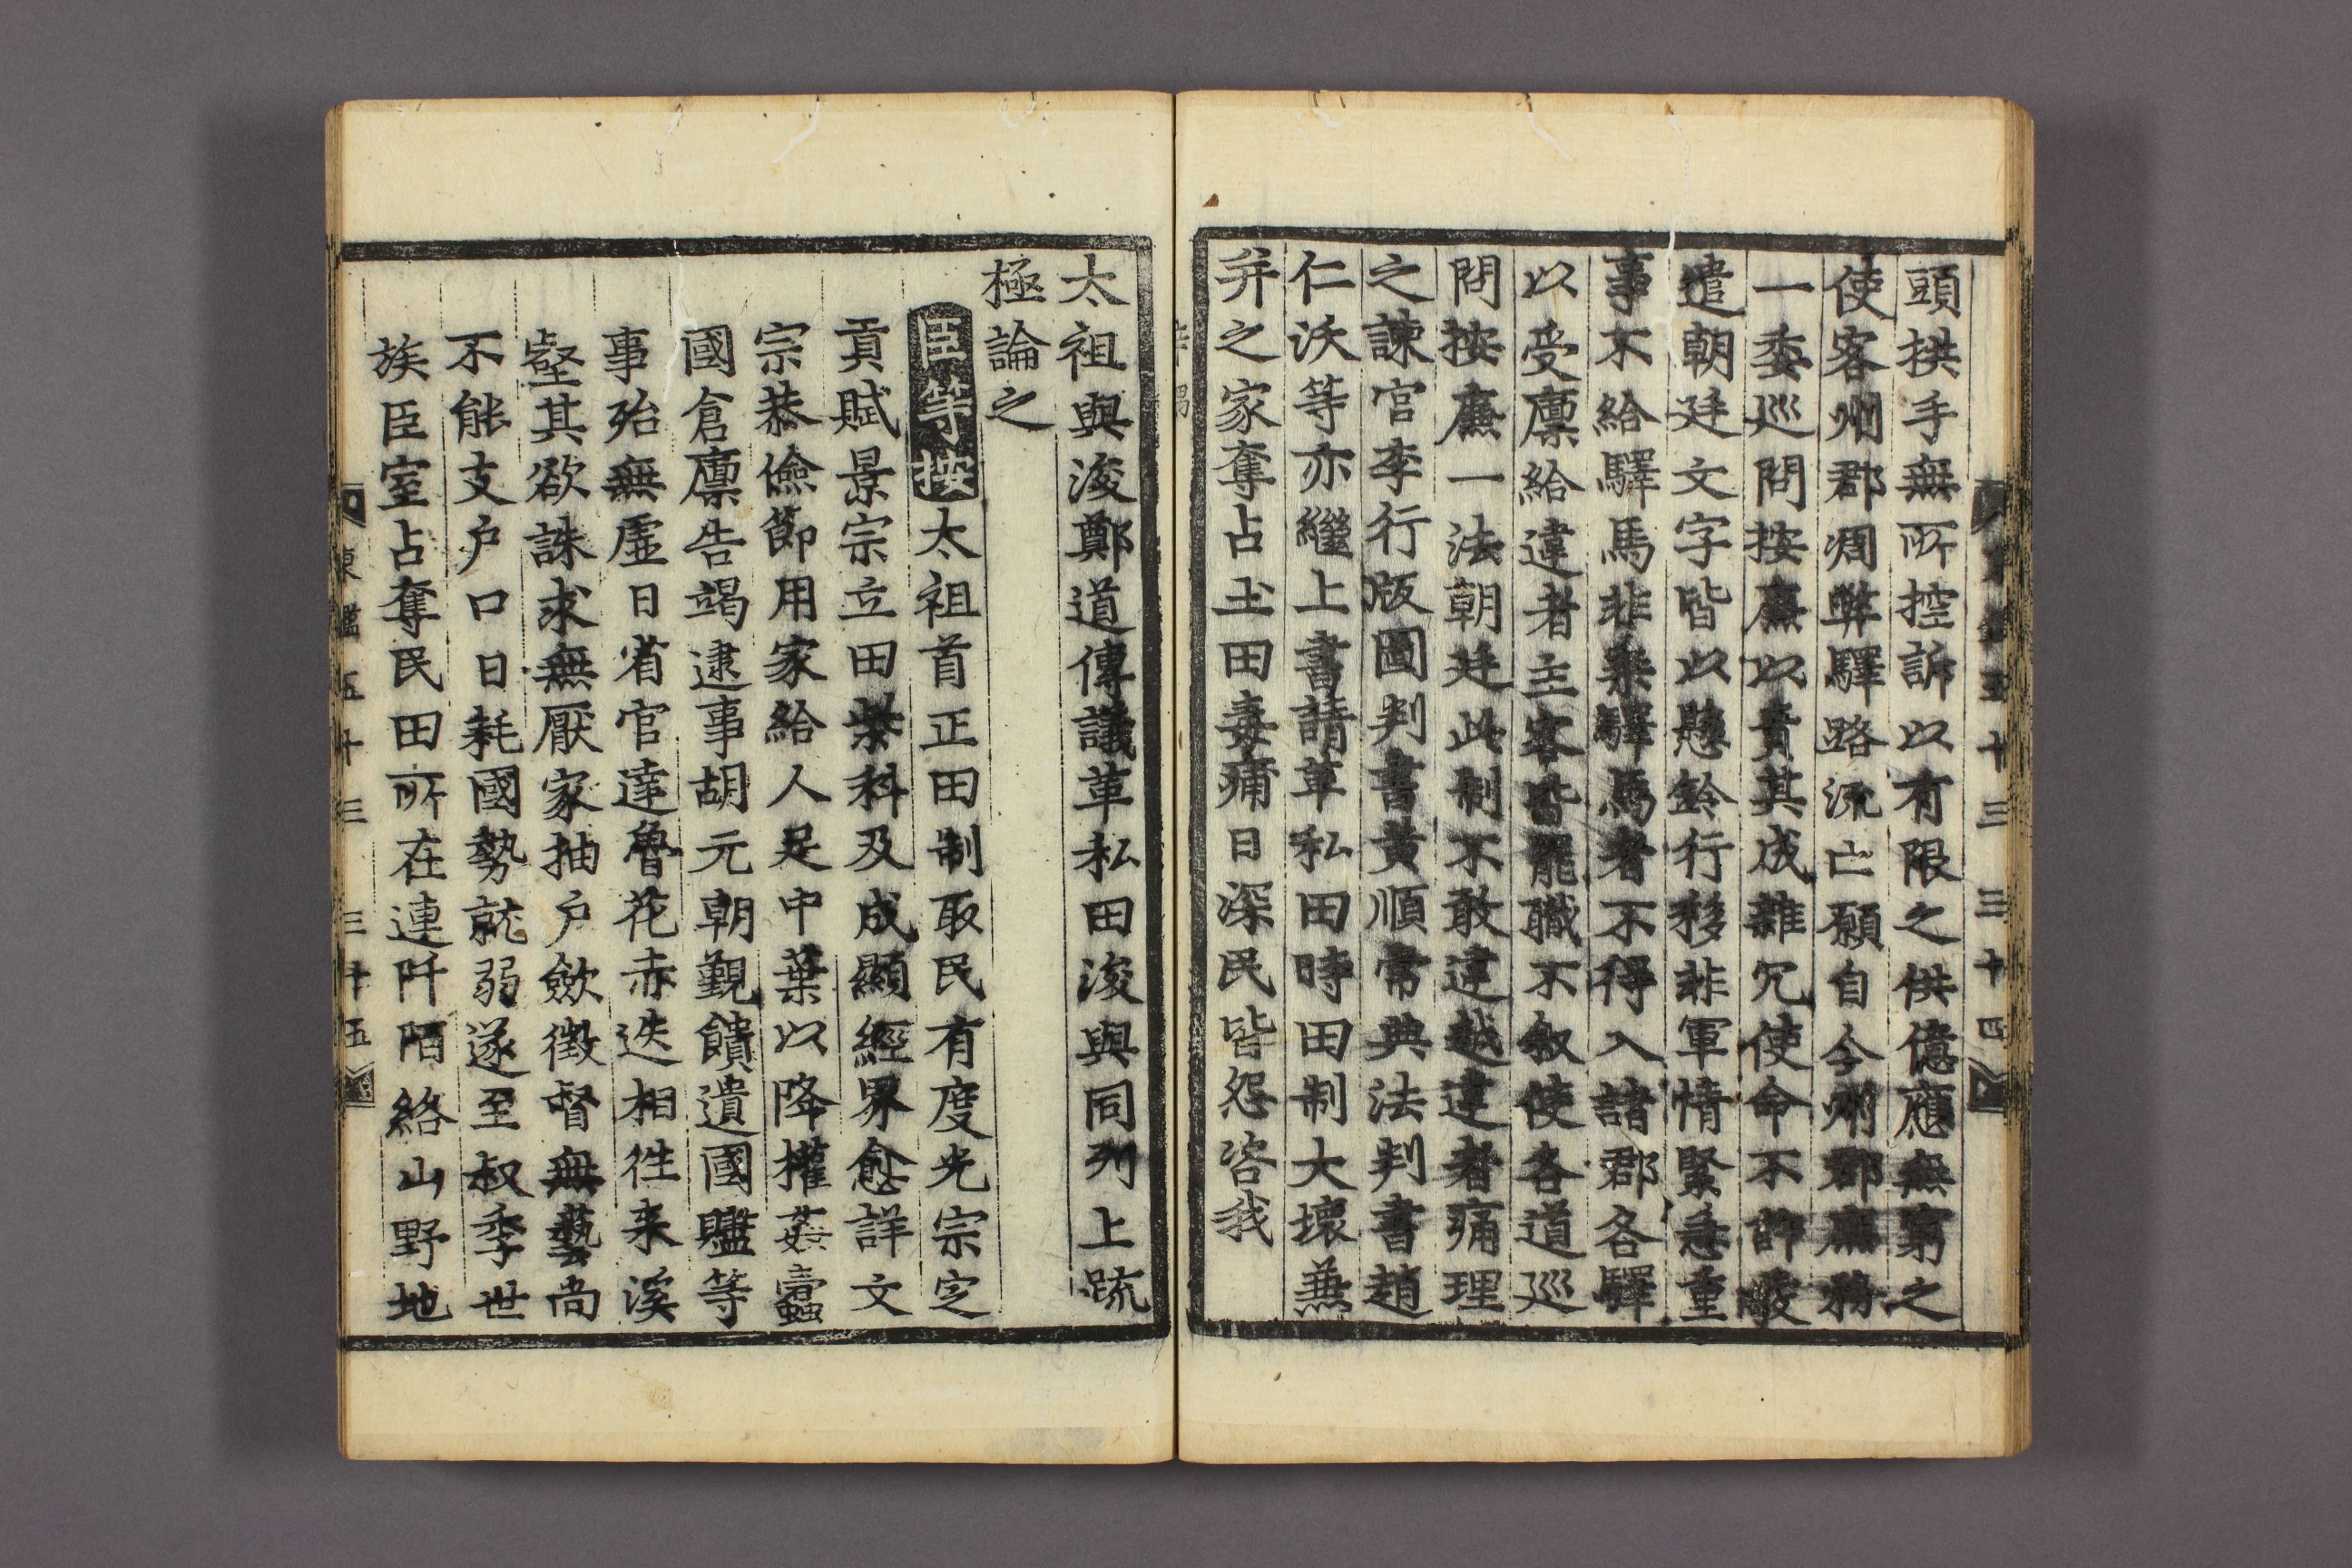 頭拱手無所控訴以有限之供億應無窮之
使客州郡凋弊驛路流亡願自今州郡庶務
一委巡問按廉以責其成雜冗使命不許發
遣朝廷文字皆以懸鈴行移非軍情緊急重
事不給驛馬非乘驛馬者不得入諸郡各驛
以受廩給違者主客皆罷職不叙使各道巡
問按廉一法朝廷此制不敢違越違者痛理
之諫官李行版圖判書黃順常典法判書趙
仁沃等亦繼上書請革私田時田制大壞兼
并之家奪占土田毒痡日深民皆怨咨我
太祖與浚鄭道傳議革私田浚與同列上疏
極論之
臣等按太祖首正田制取民有度光宗定
貢賦景宗立田柴科及成顯經界愈詳文
宗恭儉節用家給人足中葉以降權姦蠹
國倉廩告竭逮事胡元朝覲饋遺國贐等
事殆無虛日省官達魯花赤迭相徃来溪
壑其欲誅求無厭家抽户歛徵督無藝尚
不能支户口日耗國勢就弱遂至叔季世
族臣室占奪民田所在連阡陌絡山野地
東鑑五十三 三十四
東鑑五十三 三十五